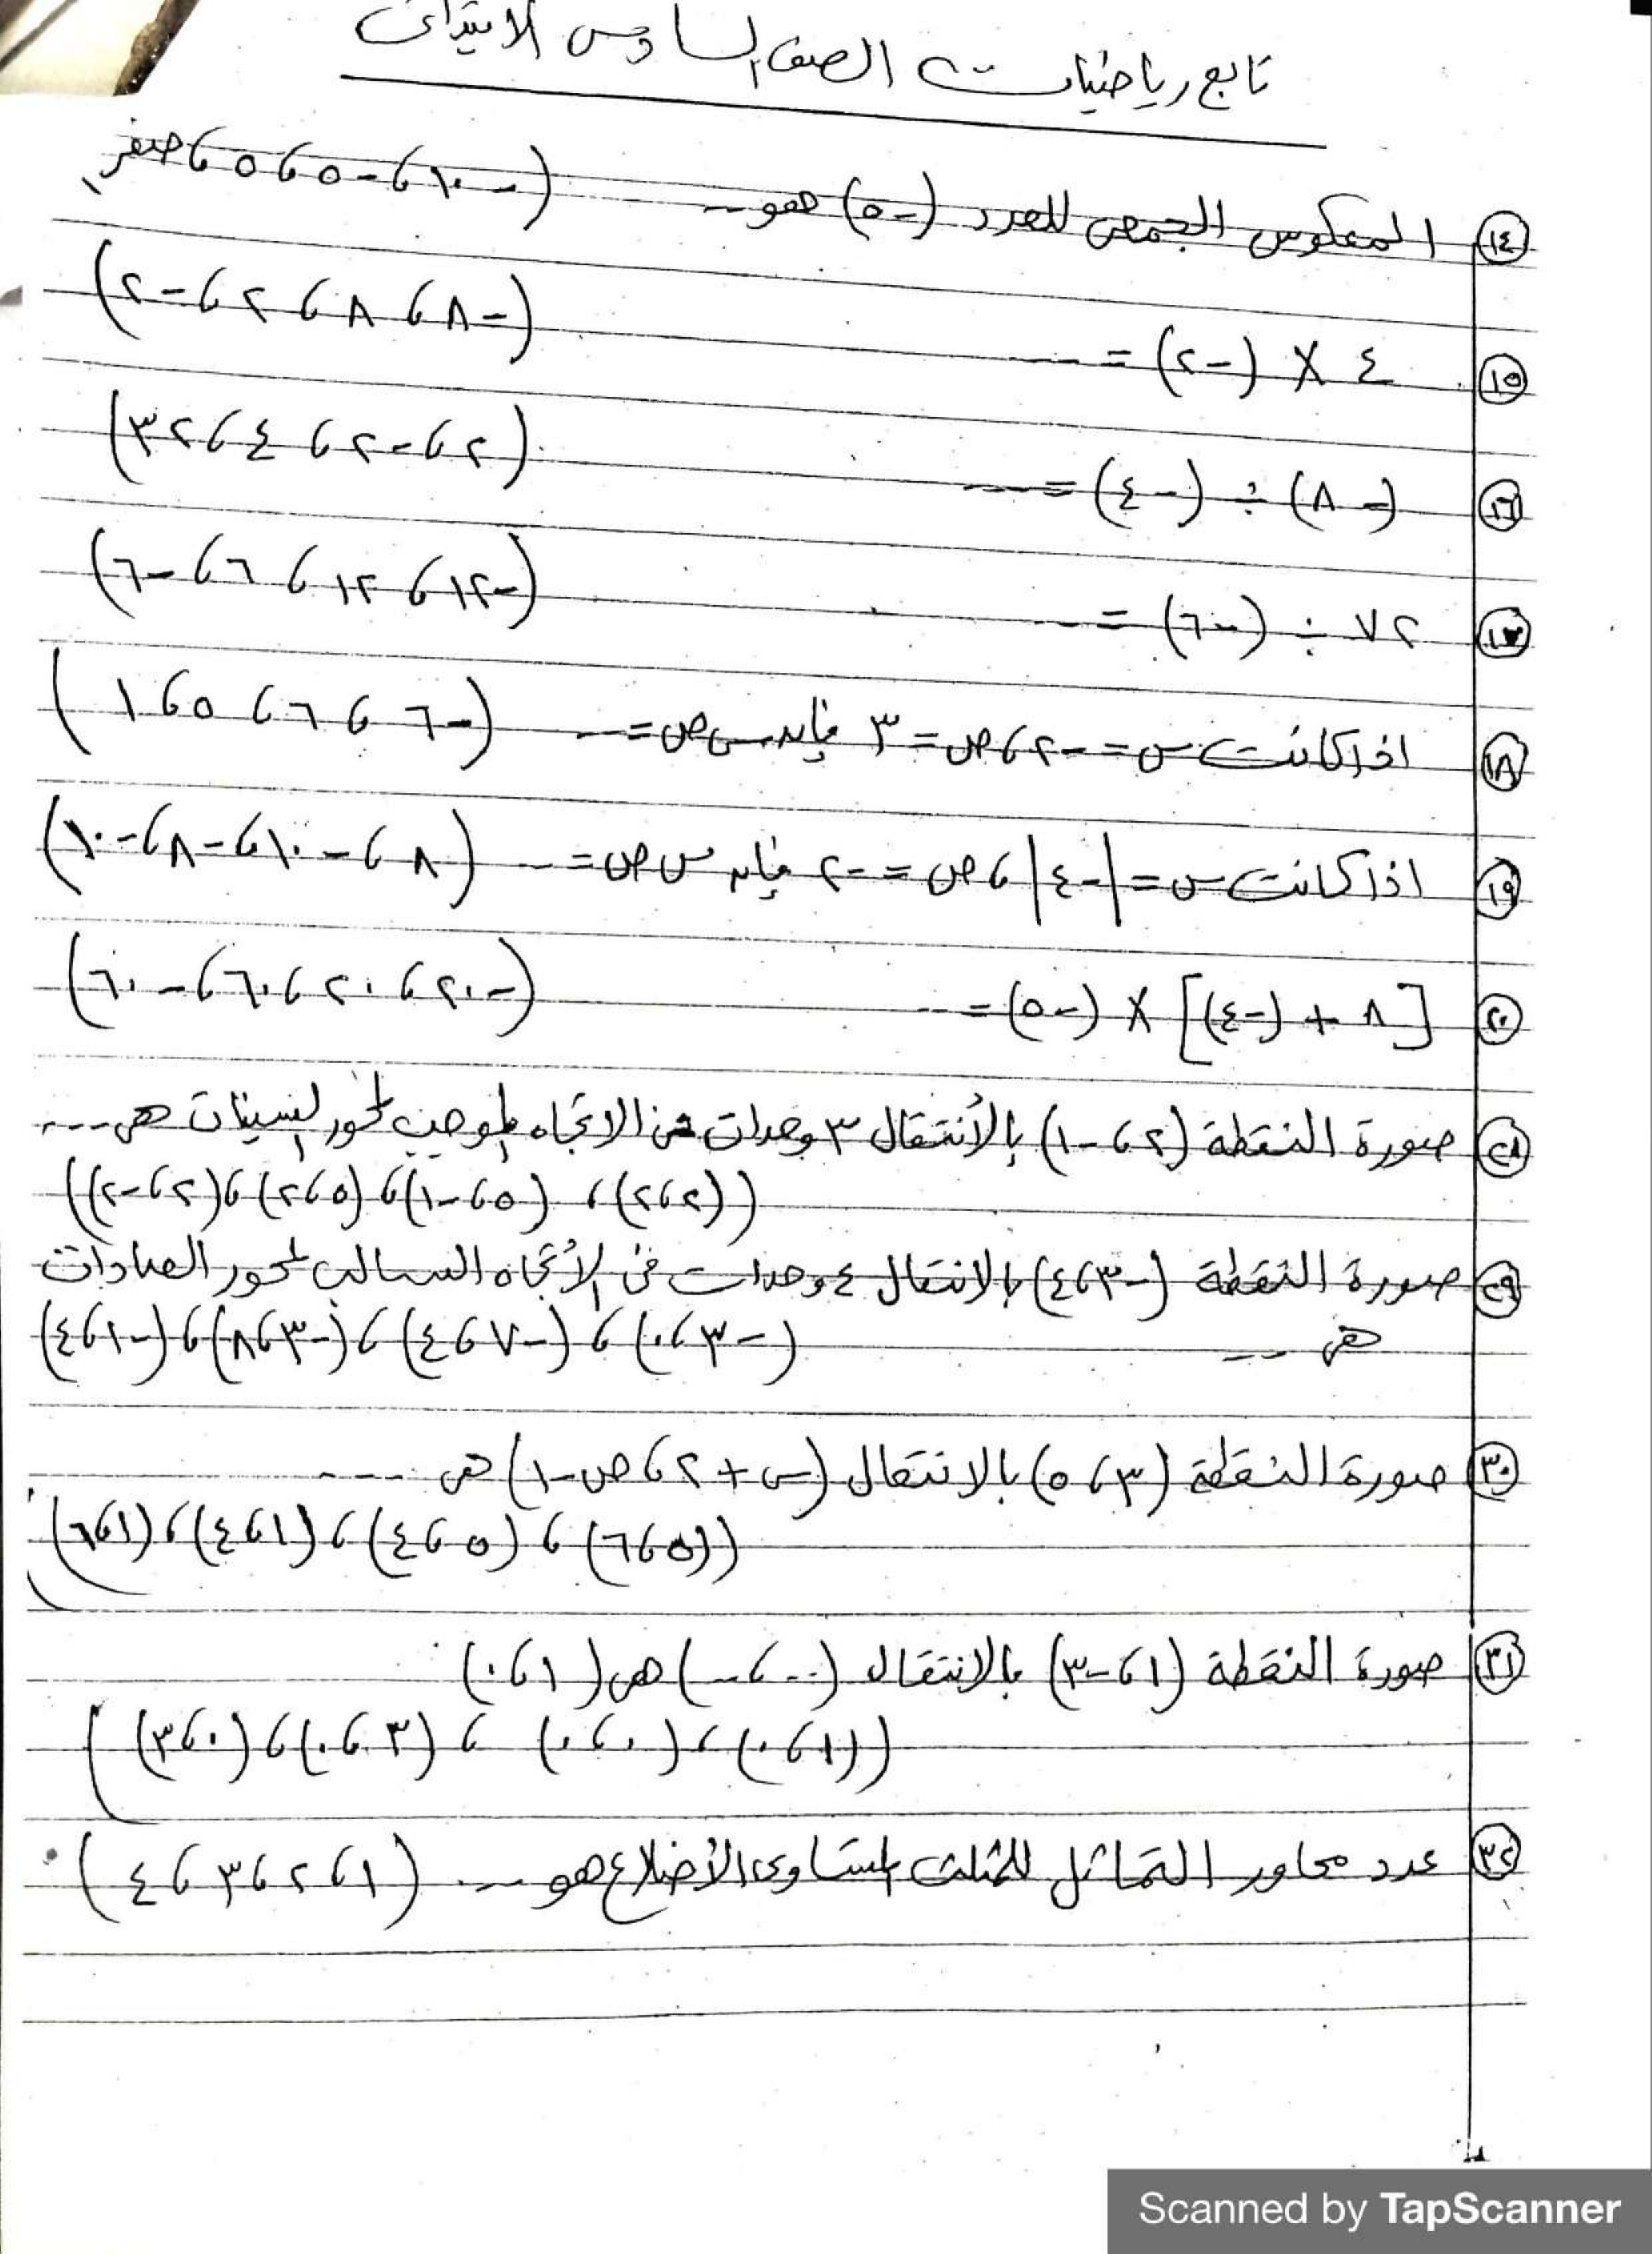 تابع رياضيات الصف السادس الابتدائى
(١٤) المعكوس الجمعى للعدد (-٥) هو --- (-١٠ ، -٥ ، ٥ ، صفر)
(١٥) ٤ × (-٢) = --- (-٨ ، ٨ ، ٢ ، -٢)
(١٦) (-٨) ÷ (-٤) = --- (٢ ، -٢ ، ٤ ، ٣٢)
(١٧) ٧٢ ÷ (-٦) = --- (-١٢ ، ١٢ ، ٦ ، -٦)
(١٨) اذا كانت س = -٢ ، ص = ٣ فإن س ص = --- (-٦ ، ٦ ، ٥ ، ١)
(١٩) اذا كانت س = |-٤| ، ص = -٢ فإن س ص = --- (٨ ، -١٠ ، -٨ ، -١٠)
(٢٠) [٨ + (-٤)] × (-٥) = --- (-٢٠ ، ٢٠ ، ٦٠ ، -٦٠)
(٢٨) صورة النقطة (٢ ، -١) بالأنتقال ٣ وحدات فى الاتجاه الموجب لمحور السينات هى ---
((٢ ، ٢) ، (٥ ، -١) ، (٥ ، ٢) ، (٢ ، -٢))
(٢٩) صورة النقطة (-٣ ، ٤) بالانتقال ٤ وحدات فى الأتجاه السالب لمحور الصادات
هى --- (-٣ ، ٠) ، (-٧ ، ٤) ، (-٣ ، ٨) ، (-١ ، ٤)
(٣٠) صورة النقطة (٣ ، ٥) بالانتقال (س + ٢ ، ص - ١) هى ---
((٥ ، ٦) ، (٥ ، ٤) ، (١ ، ٤) ، (١ ، ٦))
(٣١) صورة النقطة (١ ، -٣) بالانتقال (-- ، --) هى (١ ، ٠)
((١ ، ٠) ، (٠ ، ٠) ، (٣ ، ٠) ، (٠ ، ٣))
(٣٢) عدد محاور التماثل للمثلث المتساوى الأضلاع هو --- (١ ، ٢ ، ٣ ، ٤)
Scanned by TapScanner